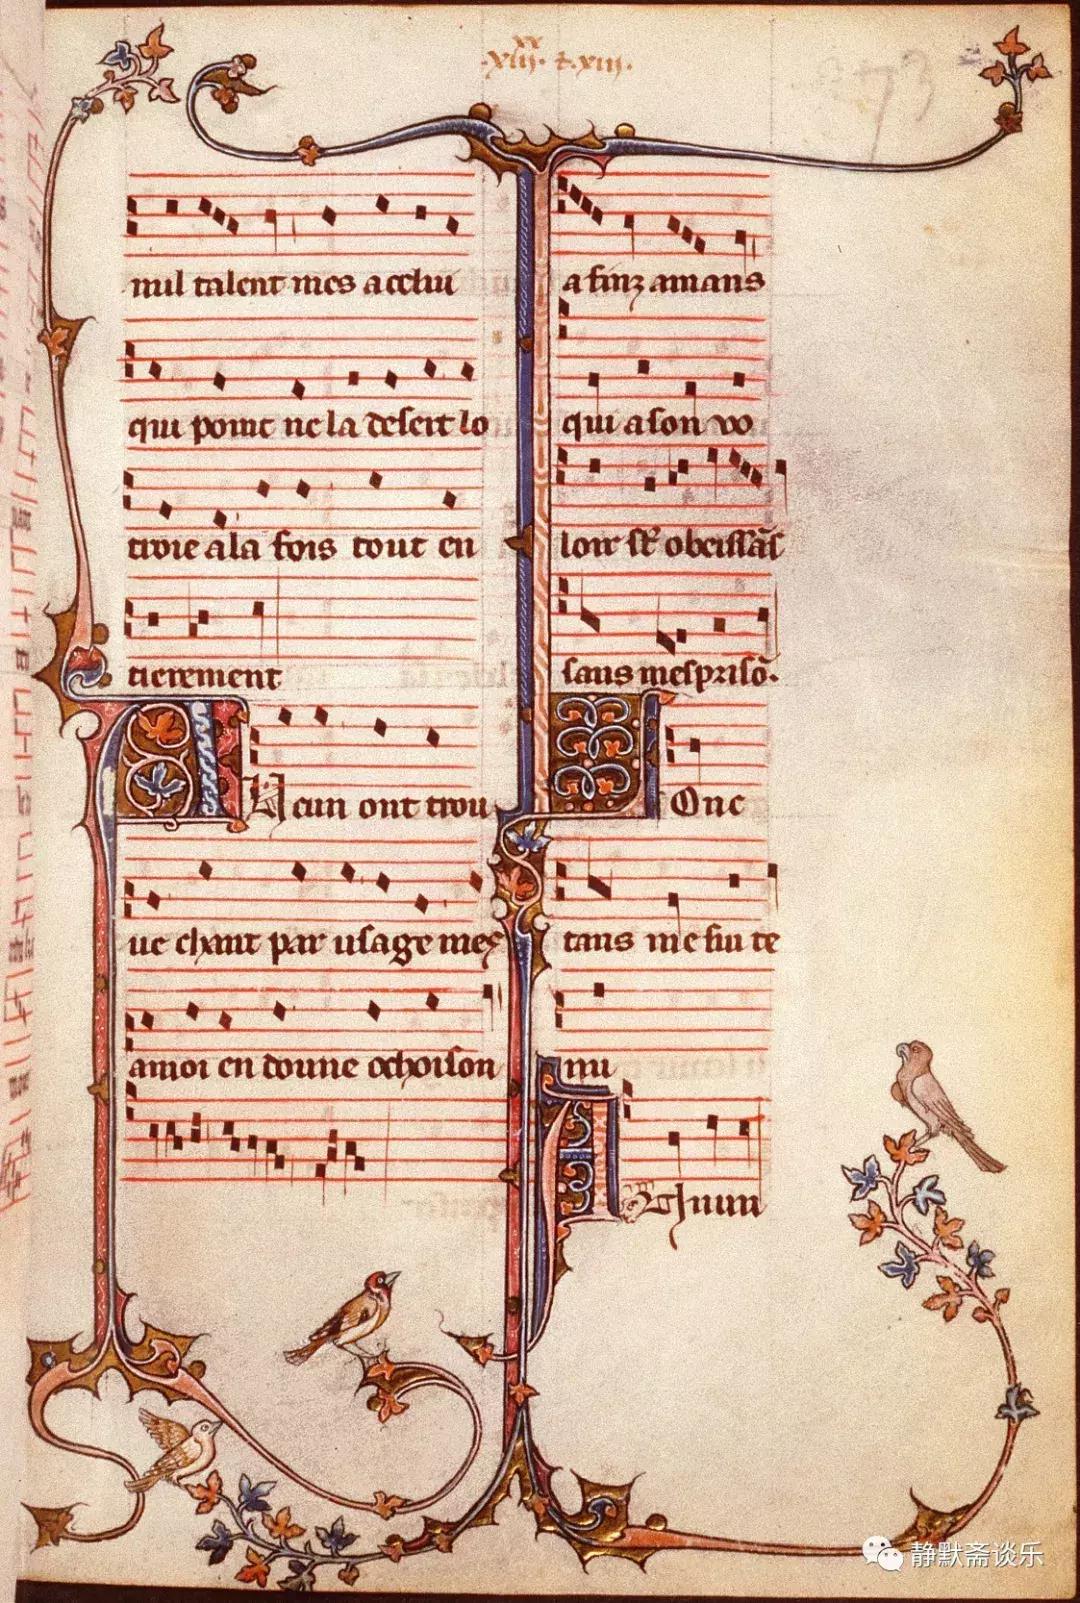 xiij. & xiij.
73
nul talent mes a celui
qui point ne la desert lo
troie a la fois tout en
tierement
A cun ont trou
ue chant par usage mes
a moi en doune ochoison
a finz amans
qui a son vo
loir sr̃ obeissãs
sans mesprisõ.
Onc
tans me sui te
nu
静默斋谈乐